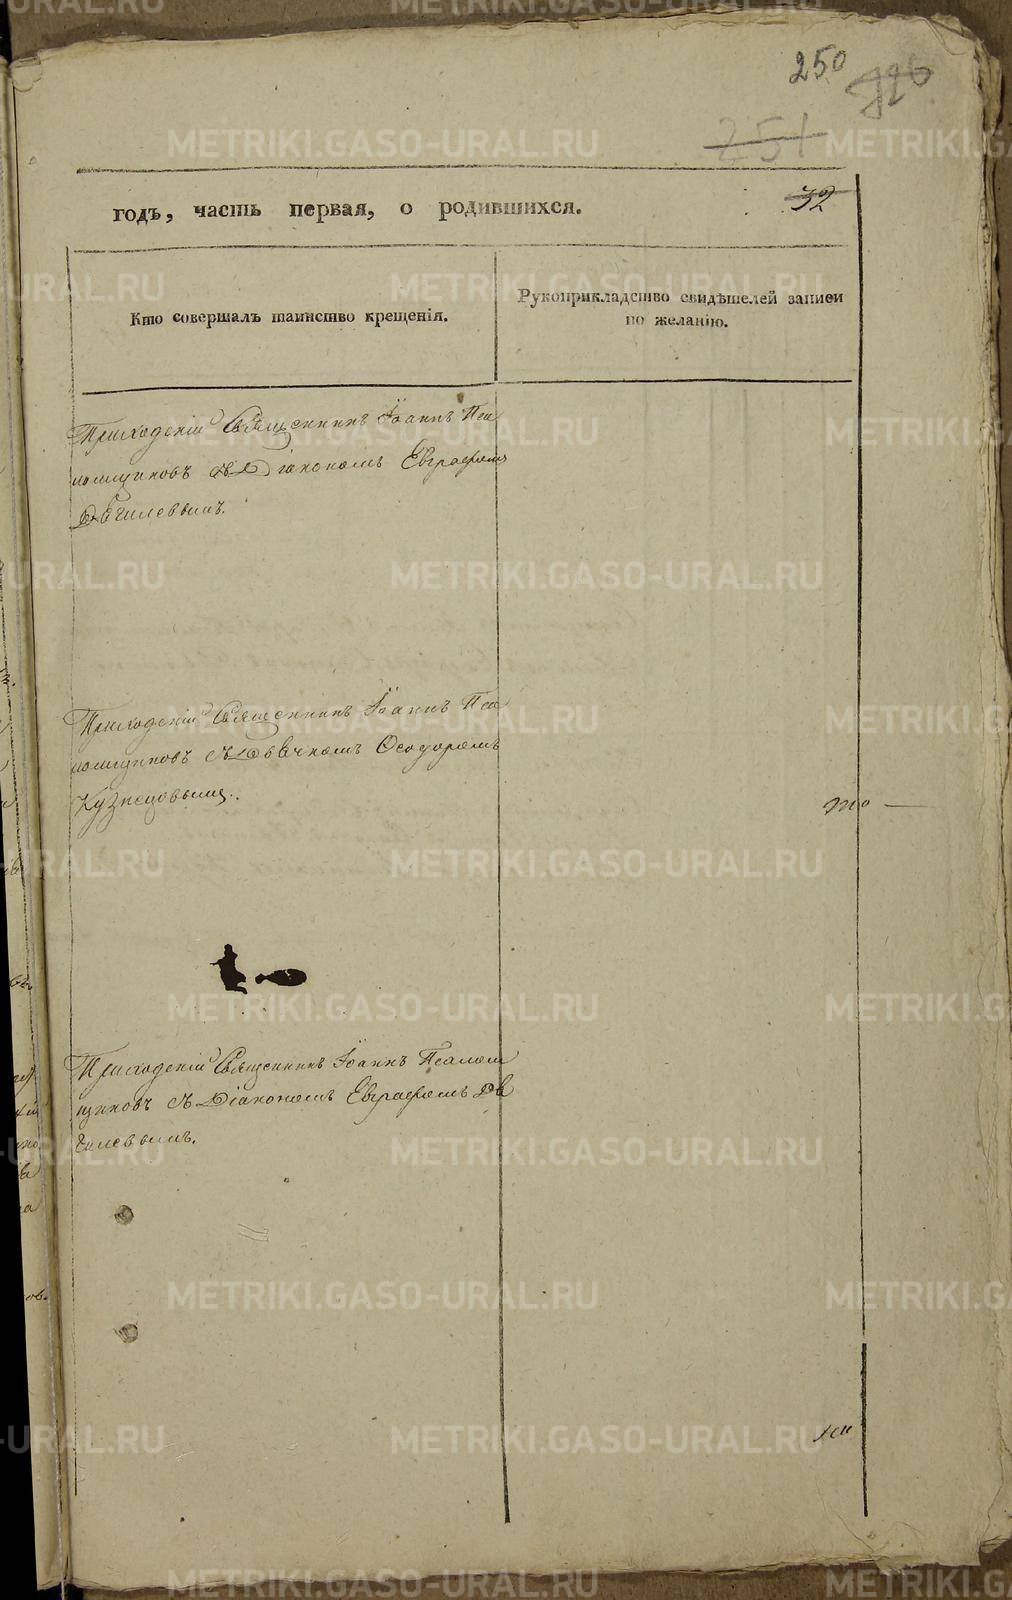 250
251
32
годъ, часть первая, о родившихся.
Кто совершалъ таинство крещенія.
Рукоприкладство свидѣтелей записи
по желанію.
Приходскій Священникъ Іоаннъ Пса
ломщиковъ съ Діакономъ Евграфомъ
Дягилевымъ.
Приходскій Священникъ Іоаннъ Пса
ломщиковъ съ Дьячкомъ Ѳеодоромъ
Кузнецовымъ.
то
Приходскій Священникъ Іоаннъ Псалом
щиковъ съ Діакономъ Евграфомъ Дя
гилевымъ.
METRIKI.GASO-URAL.RU